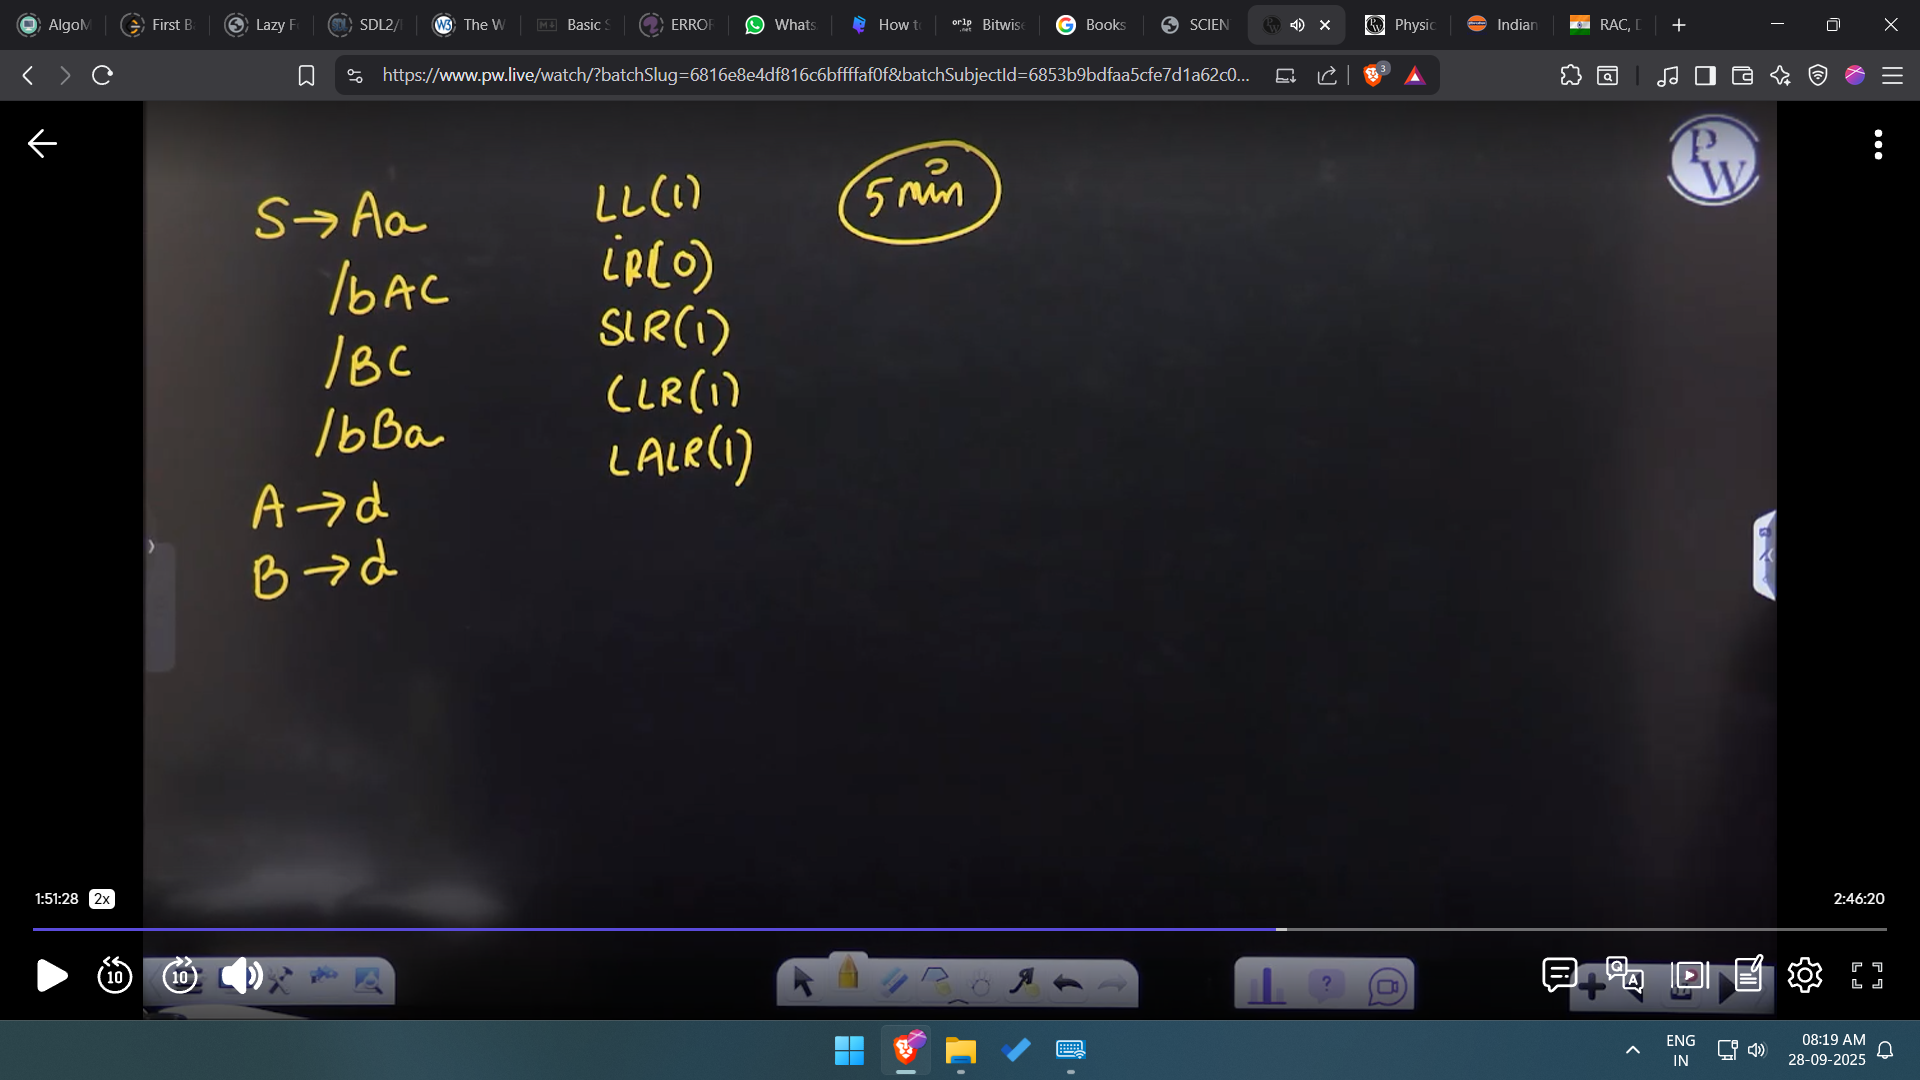 AlgoM
First B
Lazy F
SDL2/
The W
Basic S
ERROF
Whats
How t
orlp .net
Bitwise
Books
SCIEN
Physic
Indian
RAC, D
https://www.pw.live/watch/?batchSlug=6816e8e4df816c6bffffaf0f&batchSubjectId=6853b9bdfaa5cfe7d1a62c0...
3
PW
S → Aa
/bAC
/BC
/bBa
A → d
B → d
LL(1)
LR(0)
SLR(1)
CLR(1)
LALR(1)
5 min
1:51:28 2x
2:46:20
10
10
ENG
IN
08:19 AM
28-09-2025